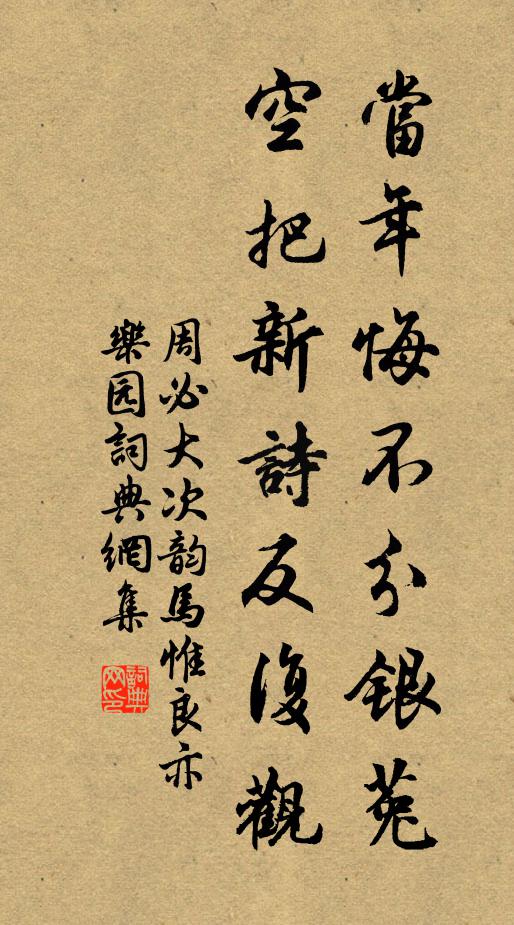 當年悔不分銀菟
空把新詩反復觀
周必大次韵馬惟良亦
樂园詞典網集
詞典网印